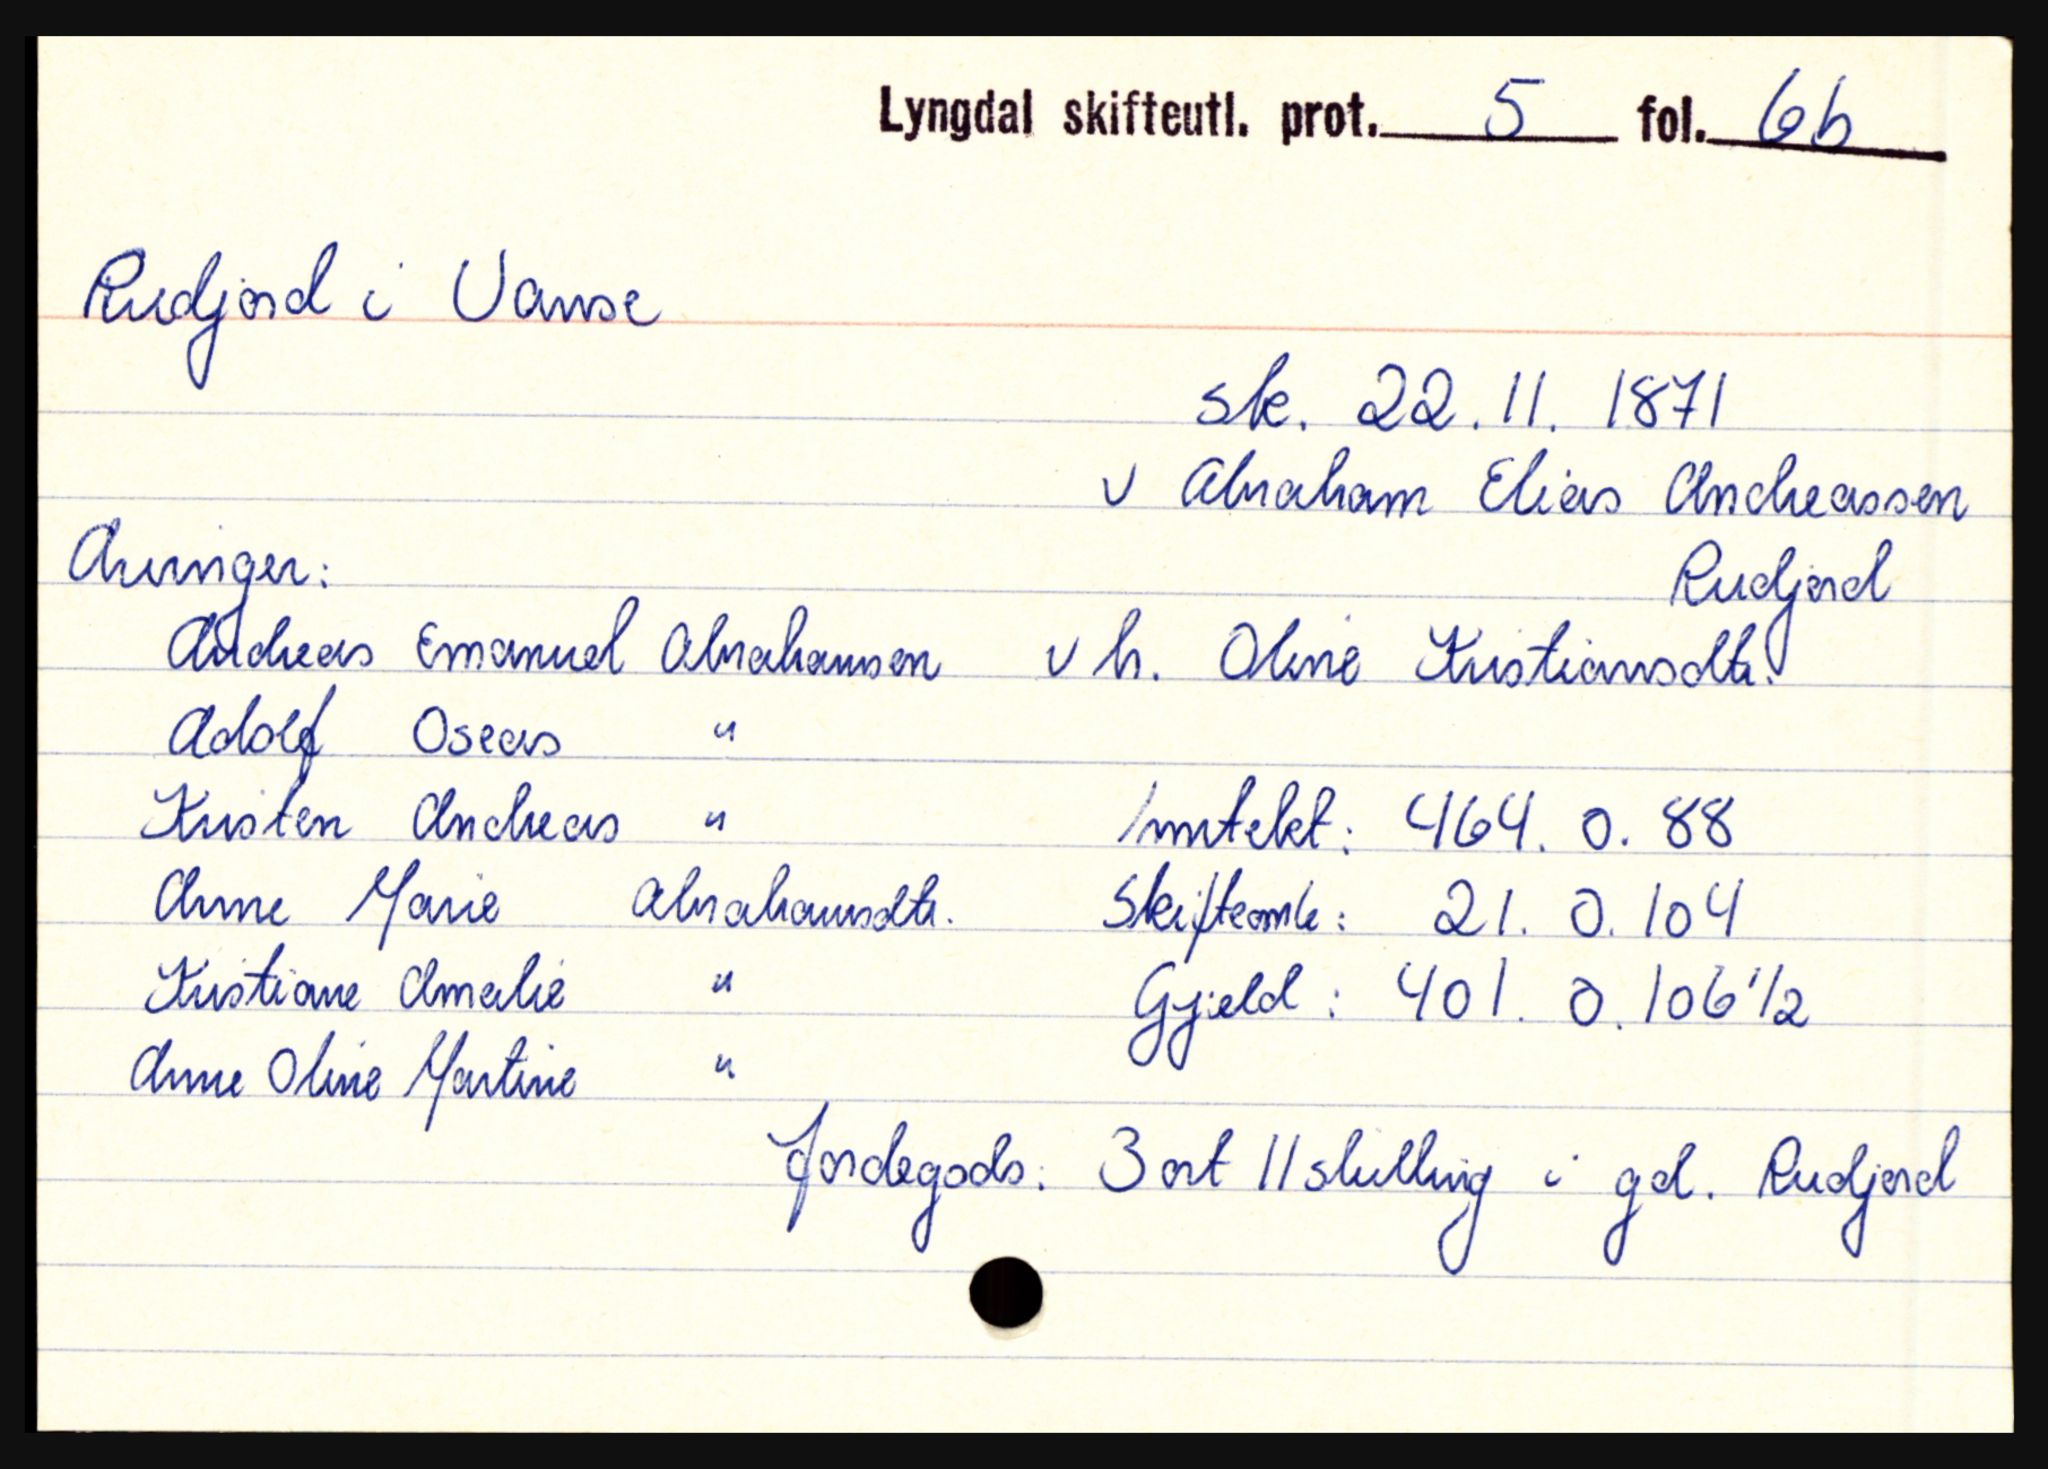 Lyngdal skifteutl. prot. 5 fol. 6b
Rudjord i Vanse
sk. 22.11.1871
v Abraham Elias Andreassen
Rudjord
Arvinger:
Andreas Emanuel Abrahamsen v h. Oline Kristiansdtr.
Adolf Oseas "
Kristen Andreas " Inntekt: 464. 0. 88
Anne Marie Abrahamsdtr. Skifteomk: 21. 0. 104
Kristiane Amalie " Gjeld: 401. 0. 106 1/2
Anne Oline Martine "
Jordegods: 3 ort 11 skilling i gd. Rudjord